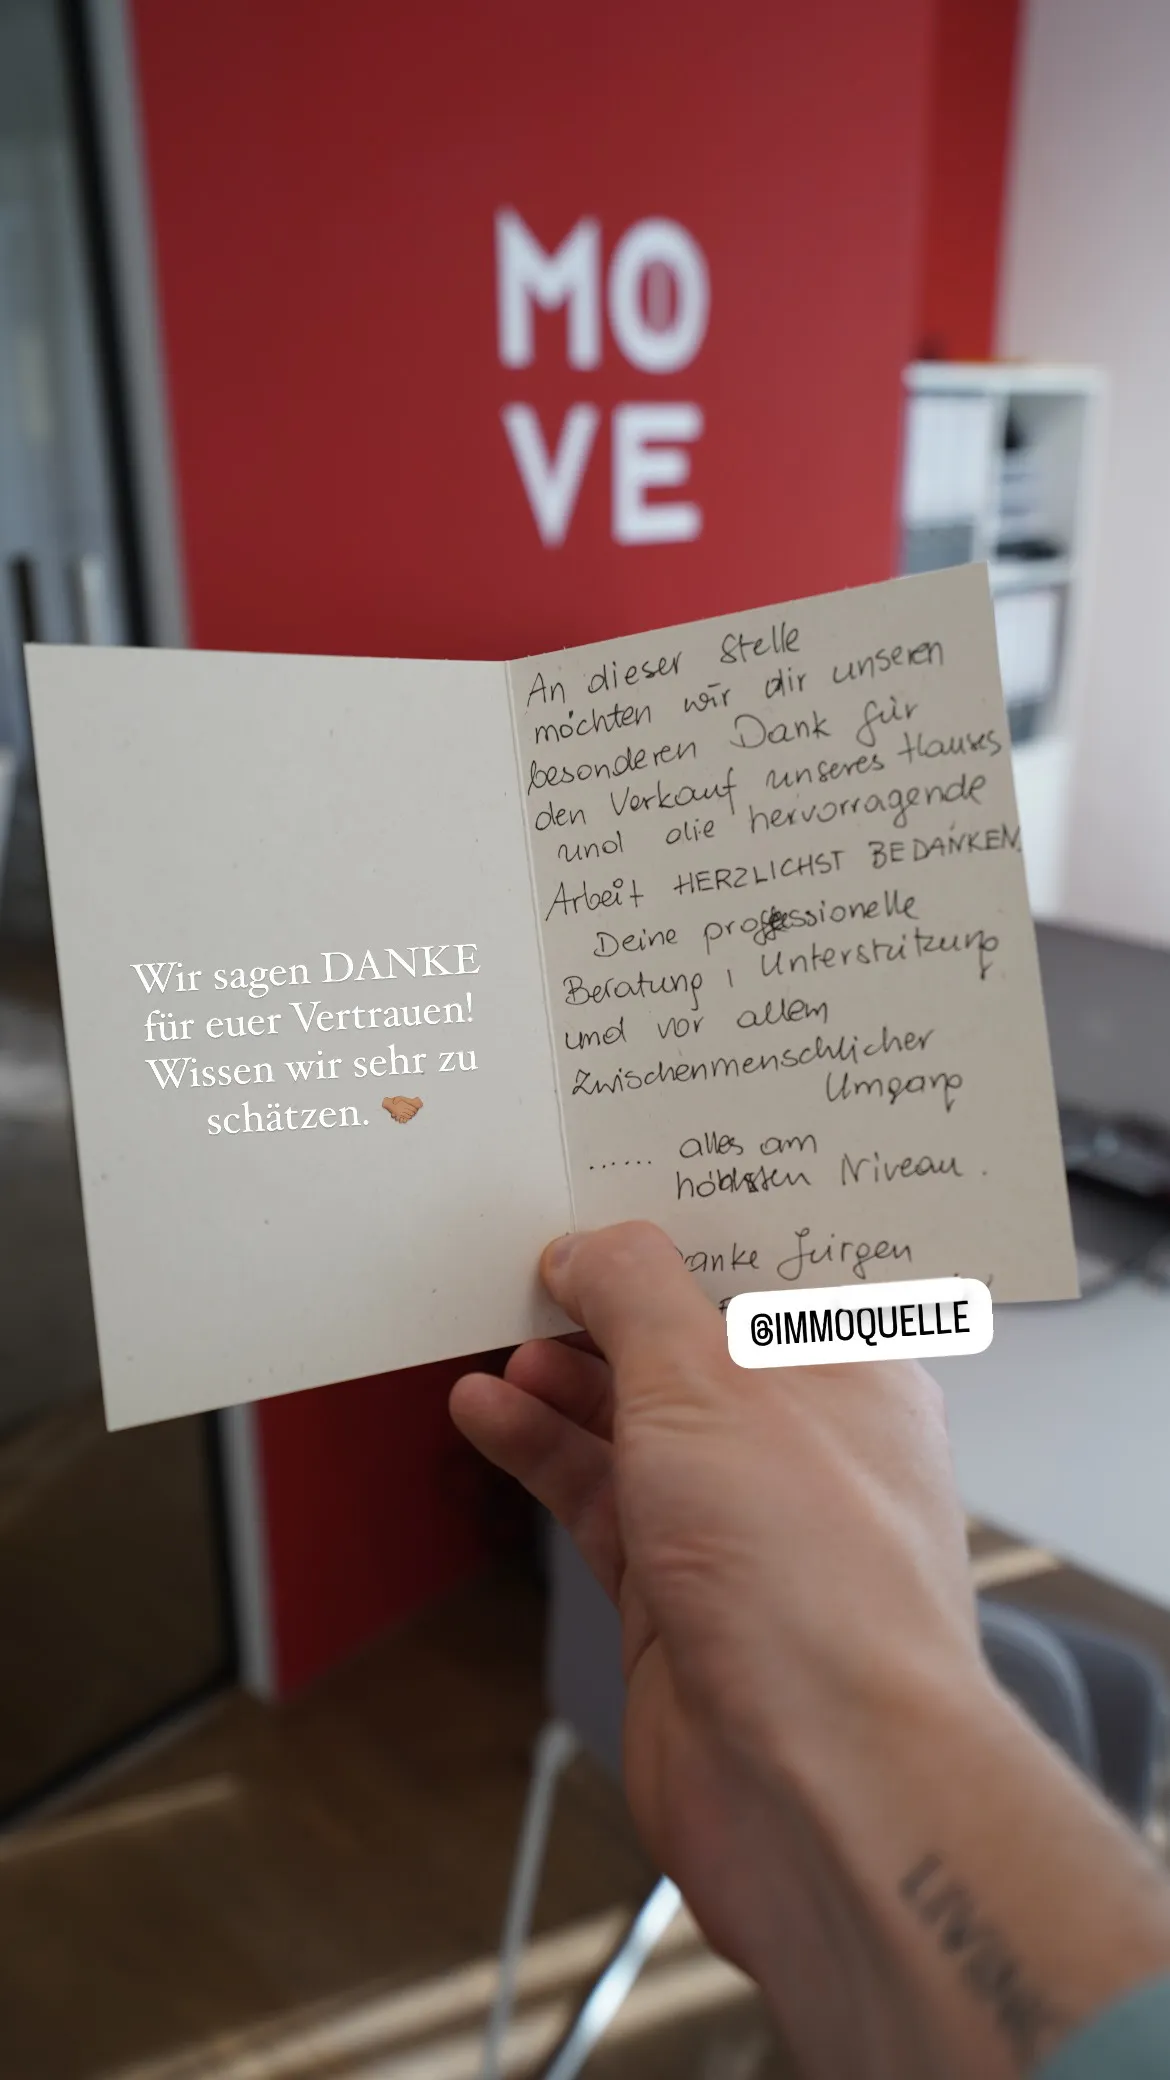 MO
VE
Wir sagen DANKE
für euer Vertrauen!
Wissen wir sehr zu
schätzen. 🤝🏽
An dieser Stelle
möchten wir dir unseren
besonderen Dank für
den Verkauf unseres Hauses
und die hervorragende
Arbeit HERZLICHST BEDANKEN.
Deine professionelle
Beratung, Unterstützung
und vor allem
Zwischenmenschlicher
Umgang
...... alles am
höchsten Niveau.
Danke Jürgen
@IMMOQUELLE